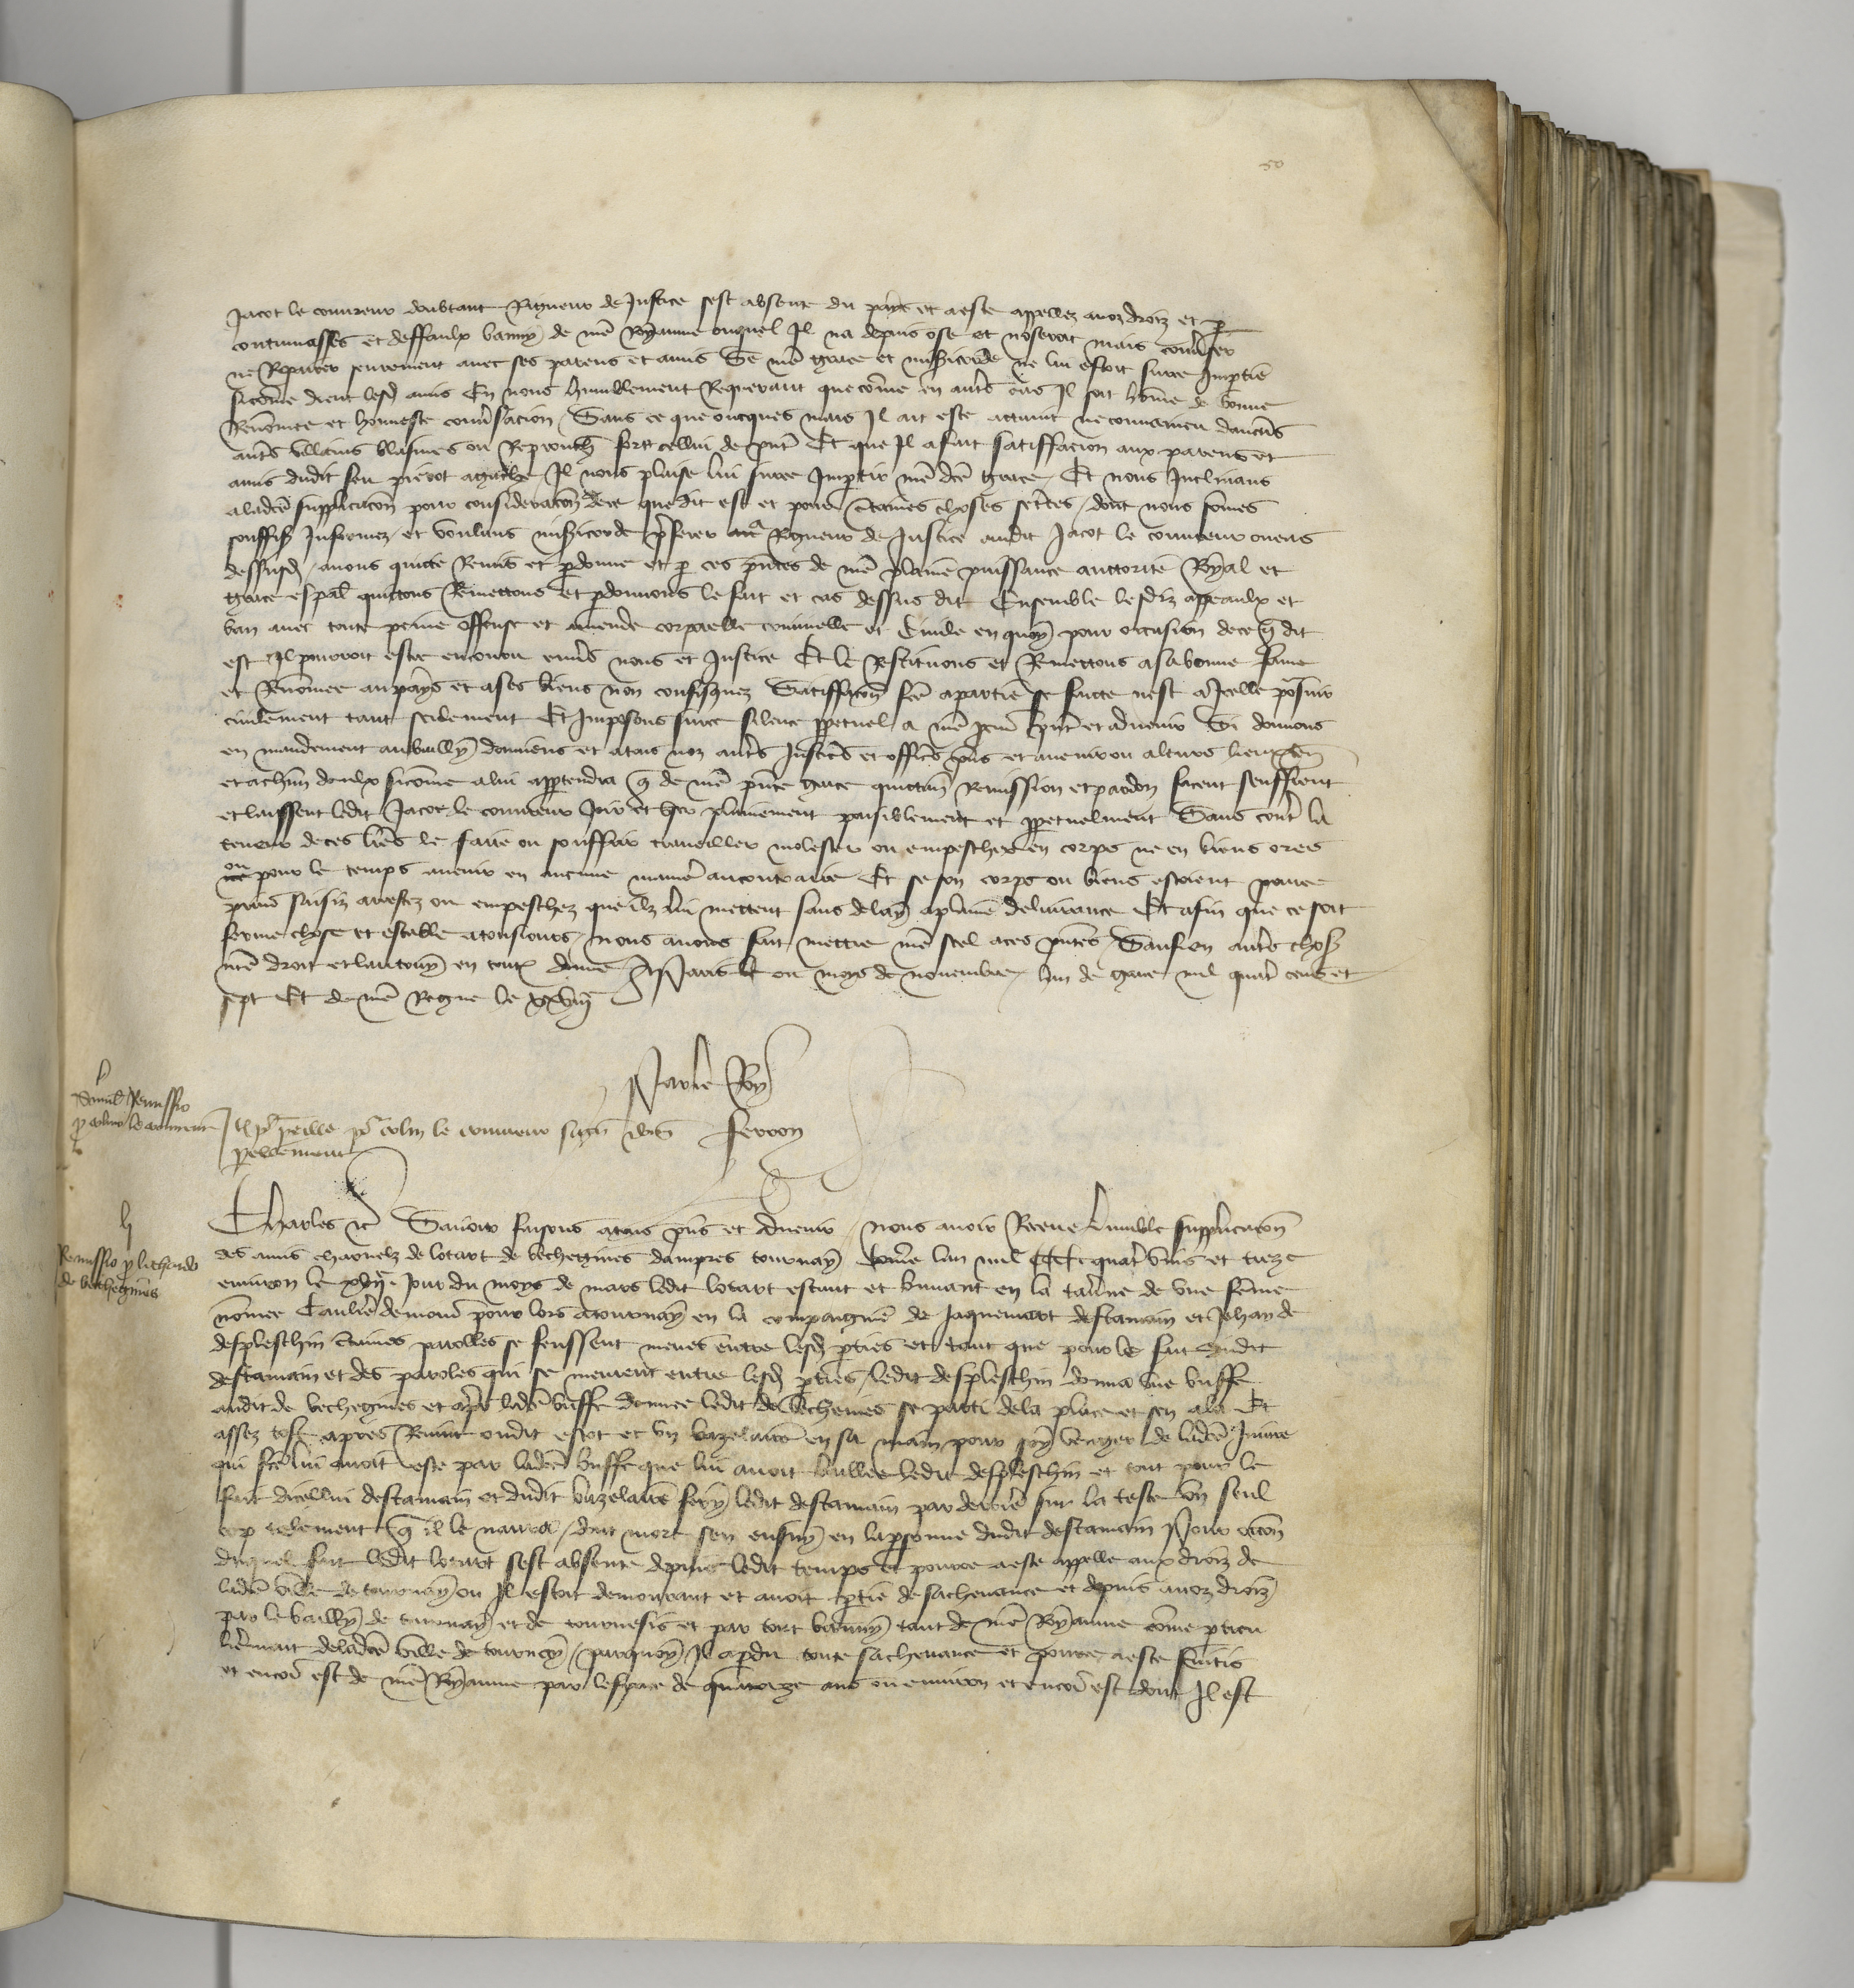 50
Jacot le couureur doubtant Rigueur de Justice sest absente du pays et a este appellez a noz droiz et p
contumasses et deffaulx banny de nre Royaume ouquel Il na depuis ose et noseroit mais conuser
ne Reparer seurement auec ses parens et amis Se nre grace et misicorde ne lui estoit sur ce Imptie
sicome dient lesd amis En nous humblement Requerant que come en autres cas Il soit home de bonne
Renomee et honneste conusacion Sans ce que oncques mais Il ait este attaint ne conuaincu daucuns
autres villains blasmes ou Reprouch fors cellui de pnt Et que Il a fait satiffacion aux parens et
amis dudit feu pierot Il nous plaise lui sur ce Impartir nre dce grace Et nous Inclinans
a ladce supplicacon pour consideracon de ce que dit est et pour ctaines choses secretes dont nous somes
souffis Infourmez et voulans misicorde pferer a Rigueur de Justice audit Jacot le couureur ou cas
dessusd auons quicte Remis et pdonne et p ces pntes de nre plaine puissance auctorite Royal et
grace espal quictons Remettons et pdonnons le fait et cas dessus dit Ensemble lesdiz appeaulx et
ban auec toute peine offense et amende corporelle criminelle et Ciuile en quoy pour occasion de ce q dit
est Il pourroit estre encouru enuers nous et Justice Et le Restituons et Remettons a sa bonne fame
et Renomee au pays et a ses biens non confisquez Satiffacon fce a partie se faicte nest a Icelle poursuir
ciuilement tant seulement Et Imposons sur ce silence ppetuel a nre pcur pnt et aduenir Si donnons
en mandement au bailly damiens et a tous noz autres Justiciers et officiers pns et auenir ou a leurs lieuxten
et a chun deulx sicome a lui appartendra q de nre pnte grace quictance Remission et pardon facent seuffrent
et laissent ledit Jacot le couureur Joir et user plainement paisiblement et ppetuelment Sans contre la
teneur de ces lres le faire ou souffrir trauiller molester ou empescher en corps ne en biens ores
ou pour le temps auenir en aucune maniere au contraire Et se son corps ou biens estoient pour ce
prins saisiz arrestez ou empeschez que Ilz lui mettent sans delay a plaine deliurance Et afin que ce soit
ferme chose et estable a tousiours nous auons fait mettre nre scel a ces pntes Sauf en autres chos
nre droit et lautruy en toutes Donne A Paris ou moys de nouembre lan de grace mil quatre cens et
sept Et de nre Regne le xxviij
Par le Roy
Remissio
p colino le couureur
p colin le couureur ferron
Remissio p
de bechegnies
Charles &c Sauoir faisons a tous pns et aduenir nous auoir Receue lumble supplicacon
des amis charnelz de lotart de bechegnies dampres tournay Come lan mil CCC quatre vins et treze
enuiron le jour du moys de mars ledit lotart estant et buuant en la tauerne de vne feme
nomee demour pour lors a tournay en la compaignie de Jaquemart destamain et Jehan de
despleschin ctaines parolles se feussent meues entre lesd pties et tant que pour le fait dudit
destamain et des paroles qui se meurent entre lesd pties ledit despleschin donna vne buffe
audit de bechegnies et apres ladce buffe donnee ledit de bechenies se parti de la place et sen ala Et
assez tost apres Reuint oudit estot et vn bazelaire en sa main pour soy venger de ladce Iniure
qui fce lui auoit este par ladce buffe que lui auoit baillee ledit despleschin et tout pour le
fait dicellui destamain et dudit bazelaire fery ledit destamain par derriere sur la teste vn seul
cop telement q il le naura dont mort sen ensuy en la psonne dudit destamain Pour occon
duquel fait ledit lotart sest absente depuis ledit temps et pour ce a este appelle aux droiz de
ladce ville de tournay ou Il estoit demourant et auoit ptie de sa cheuance et depuis a noz droiz
par le bailly de tournay et de tournesis et par tout banny tant de nre Royaume come pticu
lierement de ladce ville de tournay par quoy Il a pdu toute sa cheuance et pour ce a este fuitis
et encor est de nre Royaume par lespace de quatorze ans ou enuiron et encor est dont Il est